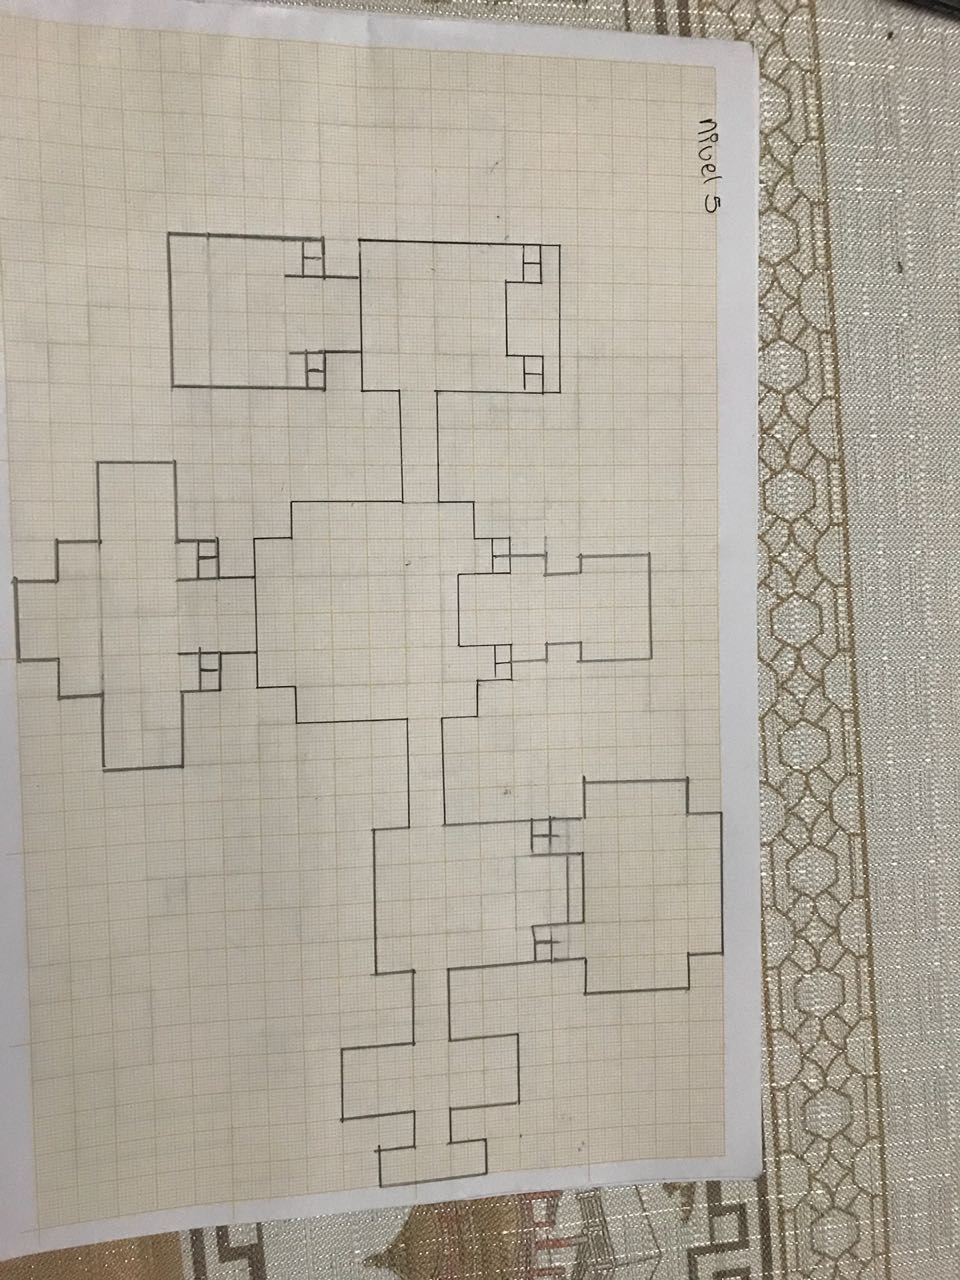 nivel 5